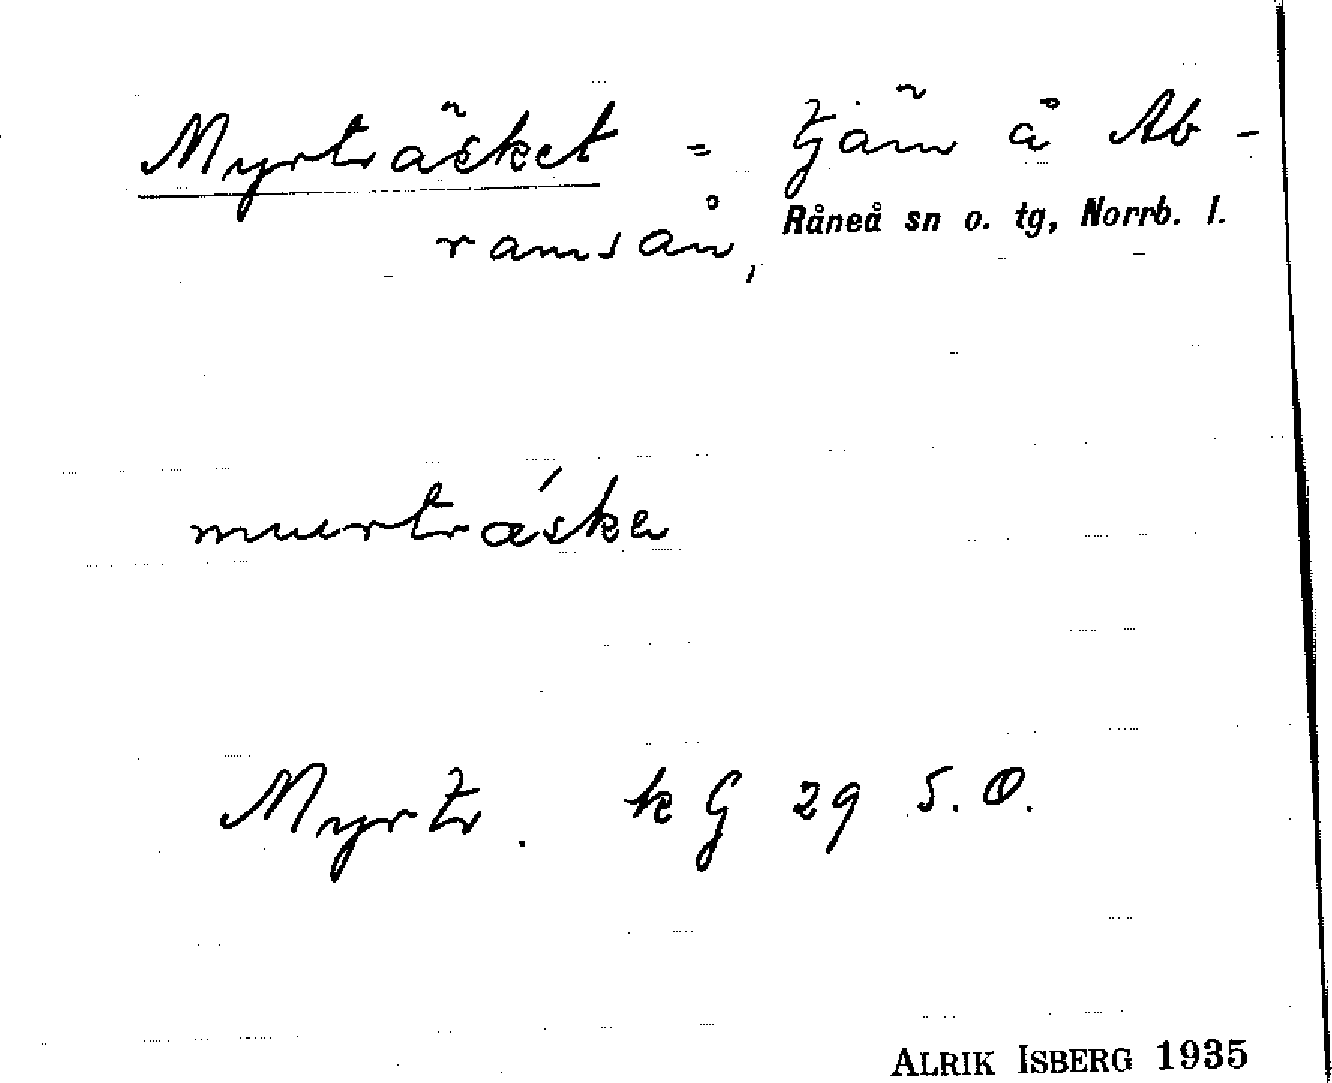 Myrträsket = tjärn å Ab-
ramsån, Råneå sn o. tg, Norrb. l.
muurtrǽska
Myrtr. kG 29 S.O.
ALRIK ISBERG 1935